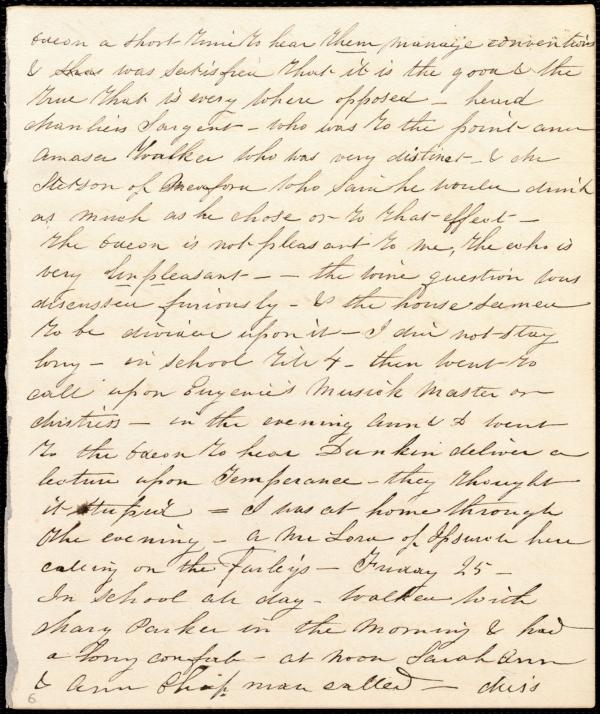 Odeon a short time to hear them manage conventions
& was satisfied that it is the good & the
true that is every where opposed – heard
Charlies Sargent – who was to the point and
Amasa Walker who was very distinct – & Mr
Stetson of Medford who said he would drink
as much as he chose or to that effect –
The Odeon is not pleasant to me, the echo is
very unpleasant – – the wine question was
discussed furiously – & the house seemed
to be divided upon it – I did not stay
long – in school till 4 – then went to
call upon Eugenie's Musick Master or
Mistress – in the evening Ann & D went
to the Odeon to hear Dunkin deliver a
lecture upon Temperance – they thought
it stupid = I was at home through
the evening – a Mr Lord of Ipswich here
calling on the Farleys – Friday 25 –
In school all day – walked with
Mary Parker in the morning & had
a long confab – at noon Sarah Ann
& Ann Chapman called – Miss
6